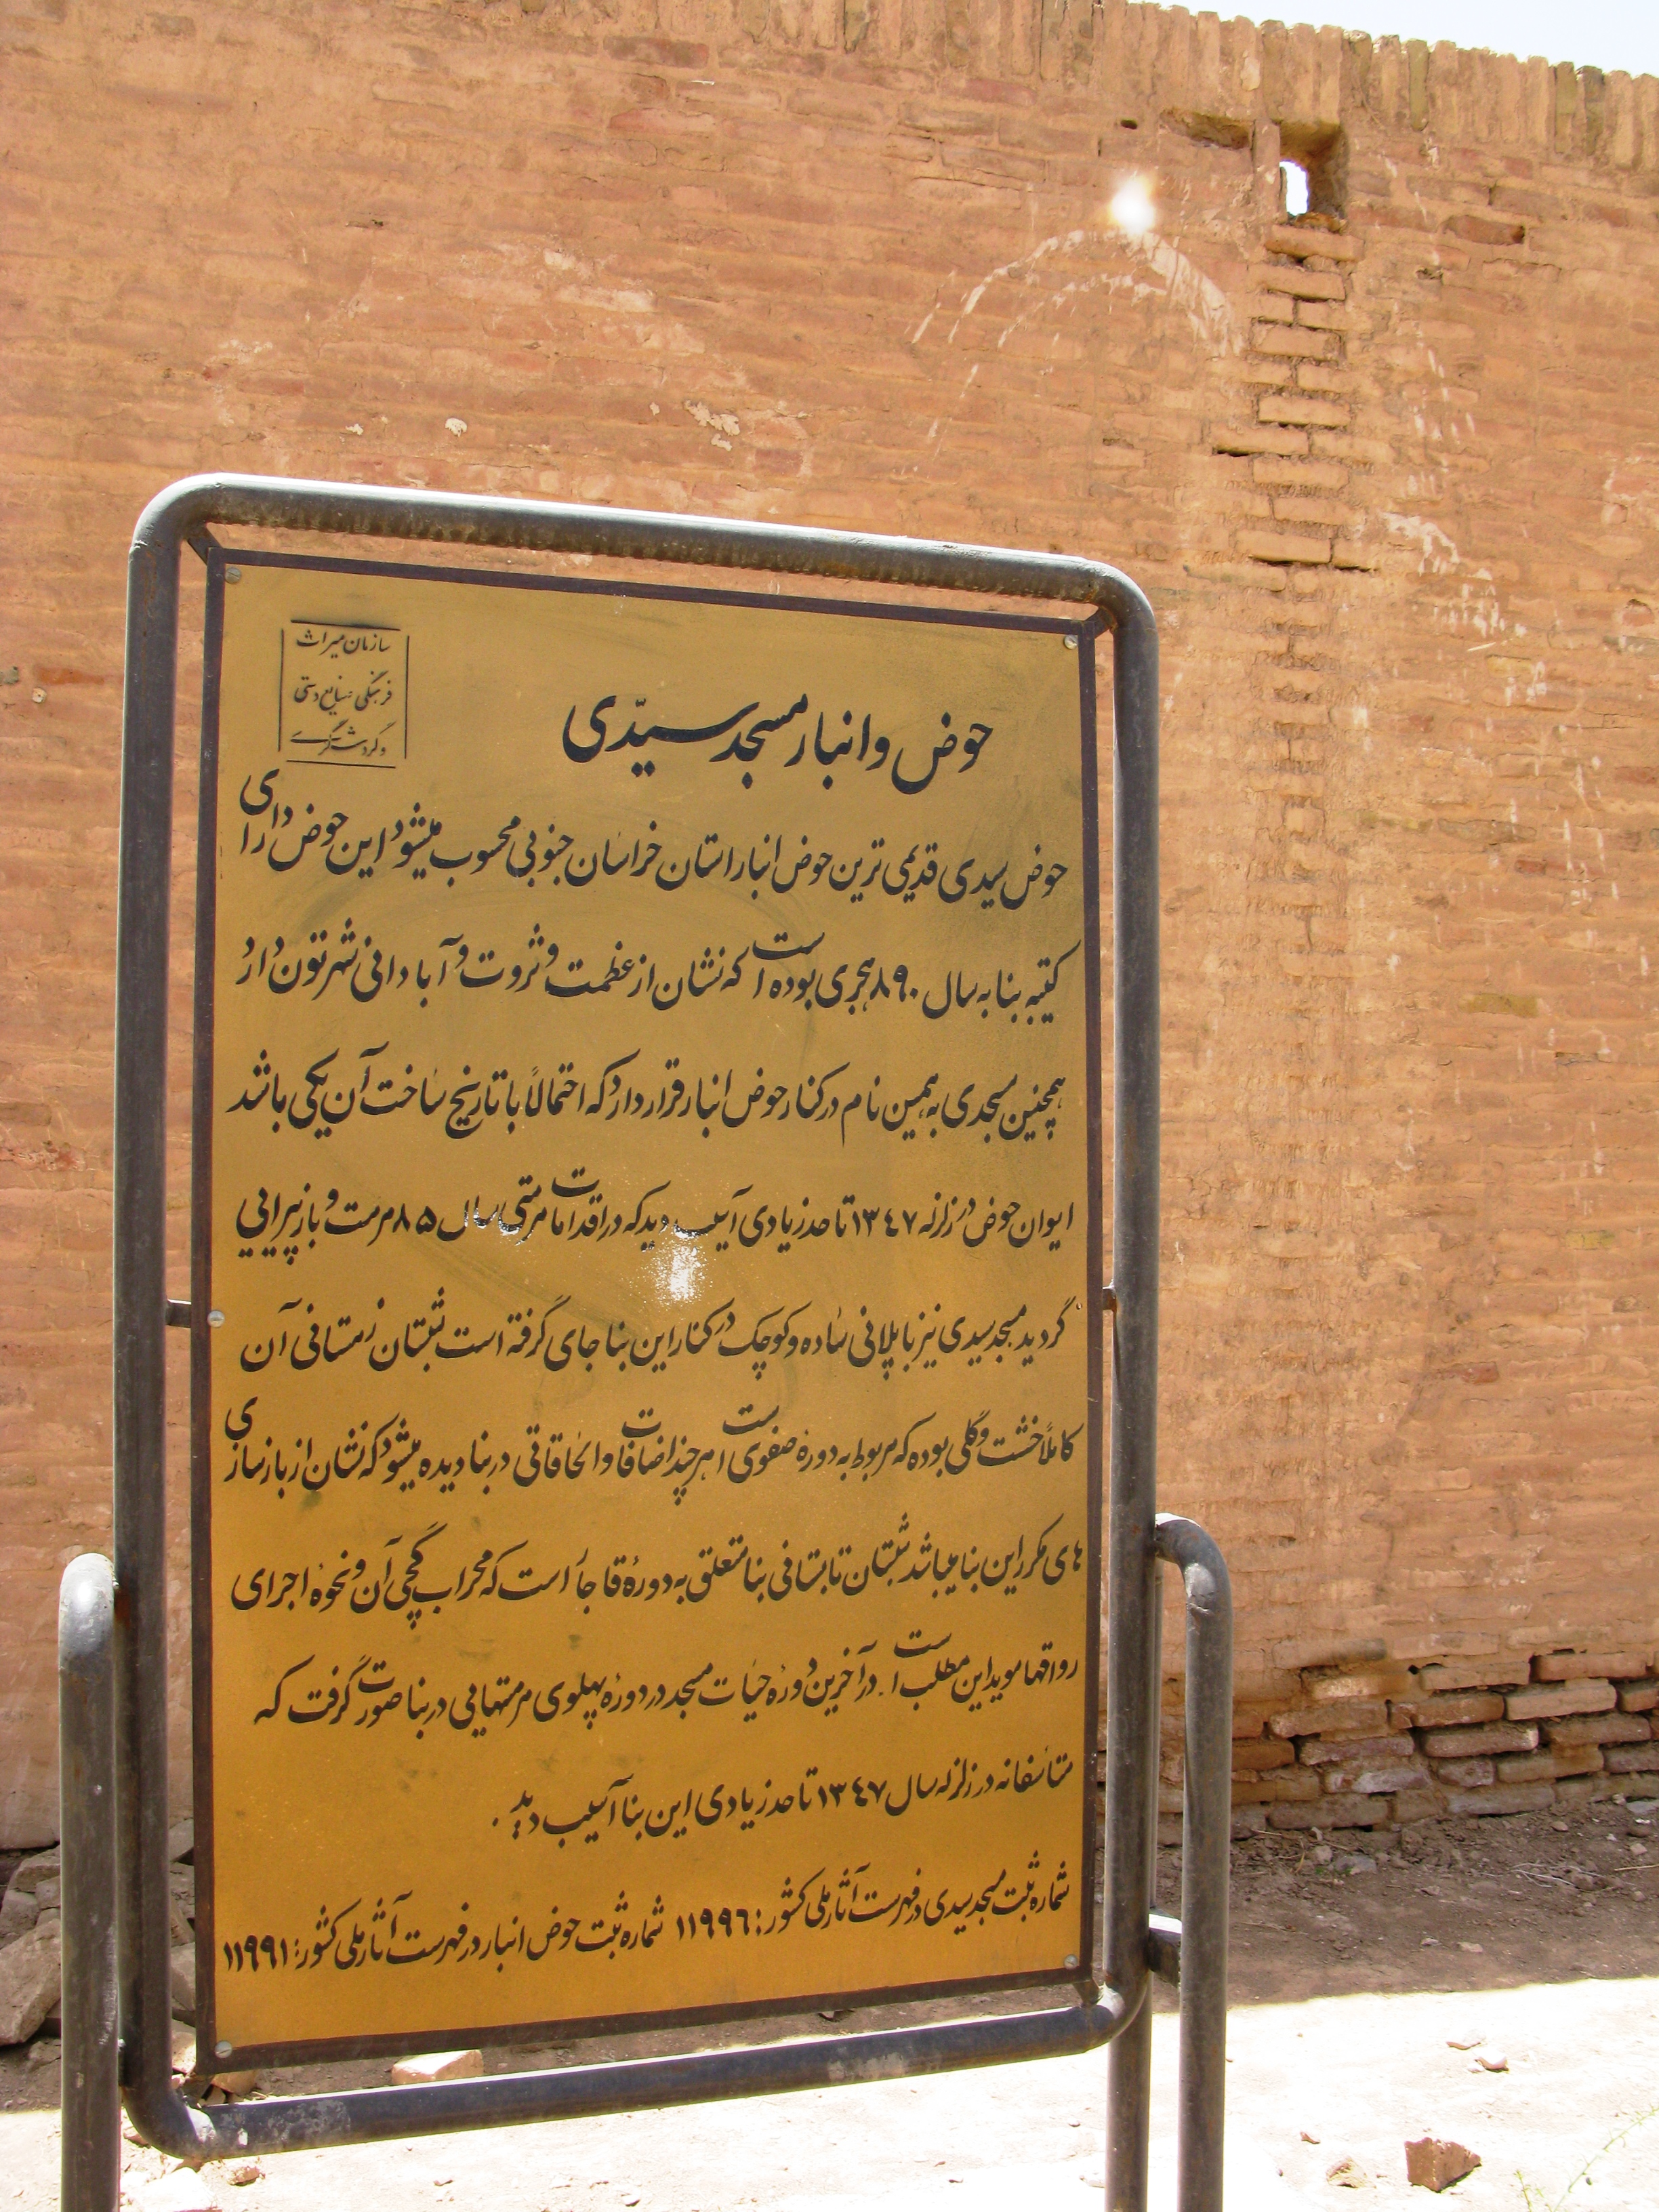 سازمان میراث
فرهنگی صنایع دستی
و گردشگری
حوض و انبار مسجد سیدّی
حوض سیدی قدیمی ترین حوض انبار استان خراسان جنوبی محسوب میشود این حوض دارای
کتیبه بنا به سال ۸۹۰ هجری بوده است که نشان از عظمت و ثروت و آبادانی شهر تون دارد
همچنین مسجدی به همین نام در کنار حوض انبار قرار دارد که احتمالاً با تاریخ ساخت آن یکی باشد
ایوان حوض در زلزله ۱۳٤۷ تا حد زیادی آسیب دید که در اقدامات مرمتی سال ۸۵ مرمت و باز پیرایی
گردید مسجد سیدی نیز با پلانی ساده و کوچک در کنار این بنا جای گرفته است شبستان زمستانی آن
کاملاً خشت و گلی بوده که مربوط به دورهٔ صفوی است هر چند اضافات و الحاقاتی در بنا دیده میشود که نشان از باز سازی
های مکرر این بنا میباشد شبستان تابستانی بنا متعلق به دورهٔ قاجار است که محراب گچی آن و نحوهٔ اجرای
رواقها موید این مطلب است. در آخرین دورهٔ حیات مسجد در دورهٔ پهلوی مرمتهایی در بنا صورت گرفت که
متأسفانه در زلزله سال ۱۳٤۷ تا حد زیادی این بنا آسیب دید.
شماره ثبت مسجد سیدی در فهرست آثار ملی کشور: ۱۱۹۹٦ شماره ثبت حوض انبار در فهرست آثار ملی کشور: ۱۱۹۹۱